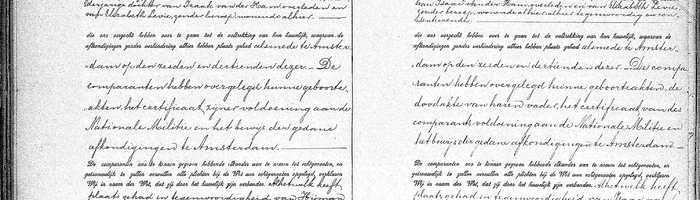 derjarige dochter van Izaak van der Ham, overleden en
van Elizabeth Levie, zonder beroep, wonende alhier.
die ons verzocht hebben over te gaan tot de voltrekking van hun huwelijk, waarvan de
afkondigingen zonder verhindering alhier hebben plaats gehad alsmede te Amster
dam op den zesden en dertienden dezer. De
comparanten hebben overgelegd hunne geboorte
akten, het certificaat zijner voldoening aan de
Nationale Militie en het bewijs der gedane
afkondigingen te Amsterdam.
De comparanten ons te kennen gegeven hebbende elkander aan te nemen tot echtgenooten, en
getrouwelijk te zullen vervullen alle plichten bij de Wet aan echtgenooten opgelegd, verklaren
Wij in naam der Wet, dat zij door het huwelijk zijn verbonden. Het welk heeft
plaats gehad in tegenwoordigheid van
van Elizabeth Levie,
zonder beroep, wonende alhier tegenwoordig en con
senteerende
die ons verzocht hebben over te gaan tot de voltrekking van hun huwelijk, waarvan de
afkondigingen zonder verhindering alhier hebben plaats gehad alsmede te Amster
dam op den zesden en dertienden dezer. De compa
ranten hebben overgelegd hunne geboorteakten, de
doodakte van haren vader, het certificaat van des
comparants voldoening aan de Nationale Militie en
het bewijs der gedane afkondigingen te Amsterdam
De comparanten ons te kennen gegeven hebbende elkander aan te nemen tot echtgenooten, en
getrouwelijk te zullen vervullen alle plichten bij de Wet aan echtgenooten opgelegd, verklaren
Wij in naam der Wet, dat zij door het huwelijk zijn verbonden. Het welk heeft
plaats gehad in tegenwoordigheid van